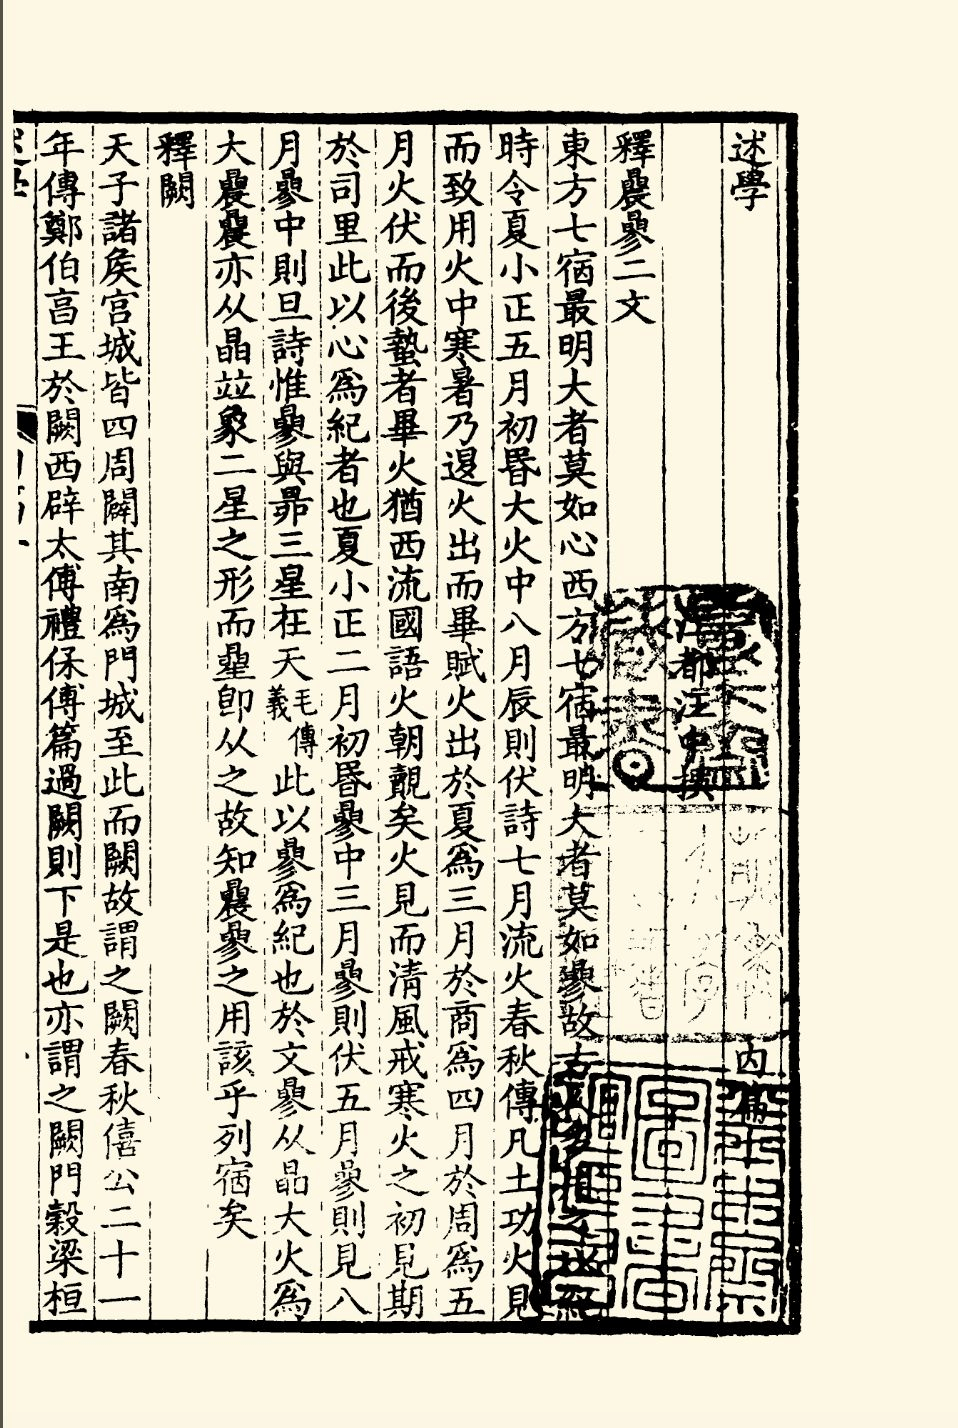 述學　內篇
江都汪中撰
釋𣊫曑二文
東方七宿最明大者莫如心西方七宿最明大者莫如曑故古
時令夏小正五月初昬大火中八月辰則伏詩七月流火春秋傳凡土功火見
而致用火中寒暑乃退火出而畢賦火出於夏爲三月於商爲四月於周爲五
月火伏而後蟄者畢火猶西流國語火朝覿矣火見而清風戒寒火之初見期
於司里此以心爲紀者也夏小正二月初昬曑中三月曑則伏五月曑則見八
月曑中則旦詩惟曑與昴三星在天毛傳義此以曑爲紀也於文曑从晶大火爲
大𣊫𣊫亦从晶竝象二星之形而曐卽从之故知𣊫曑之用該乎列宿矣
釋闕
天子諸矦宫城皆四周闢其南爲門城至此而闕故謂之闕春秋僖公二十一
年傳鄭伯亯王於闕西辟太傅禮保傅篇過闕則下是也亦謂之闕門穀梁桓